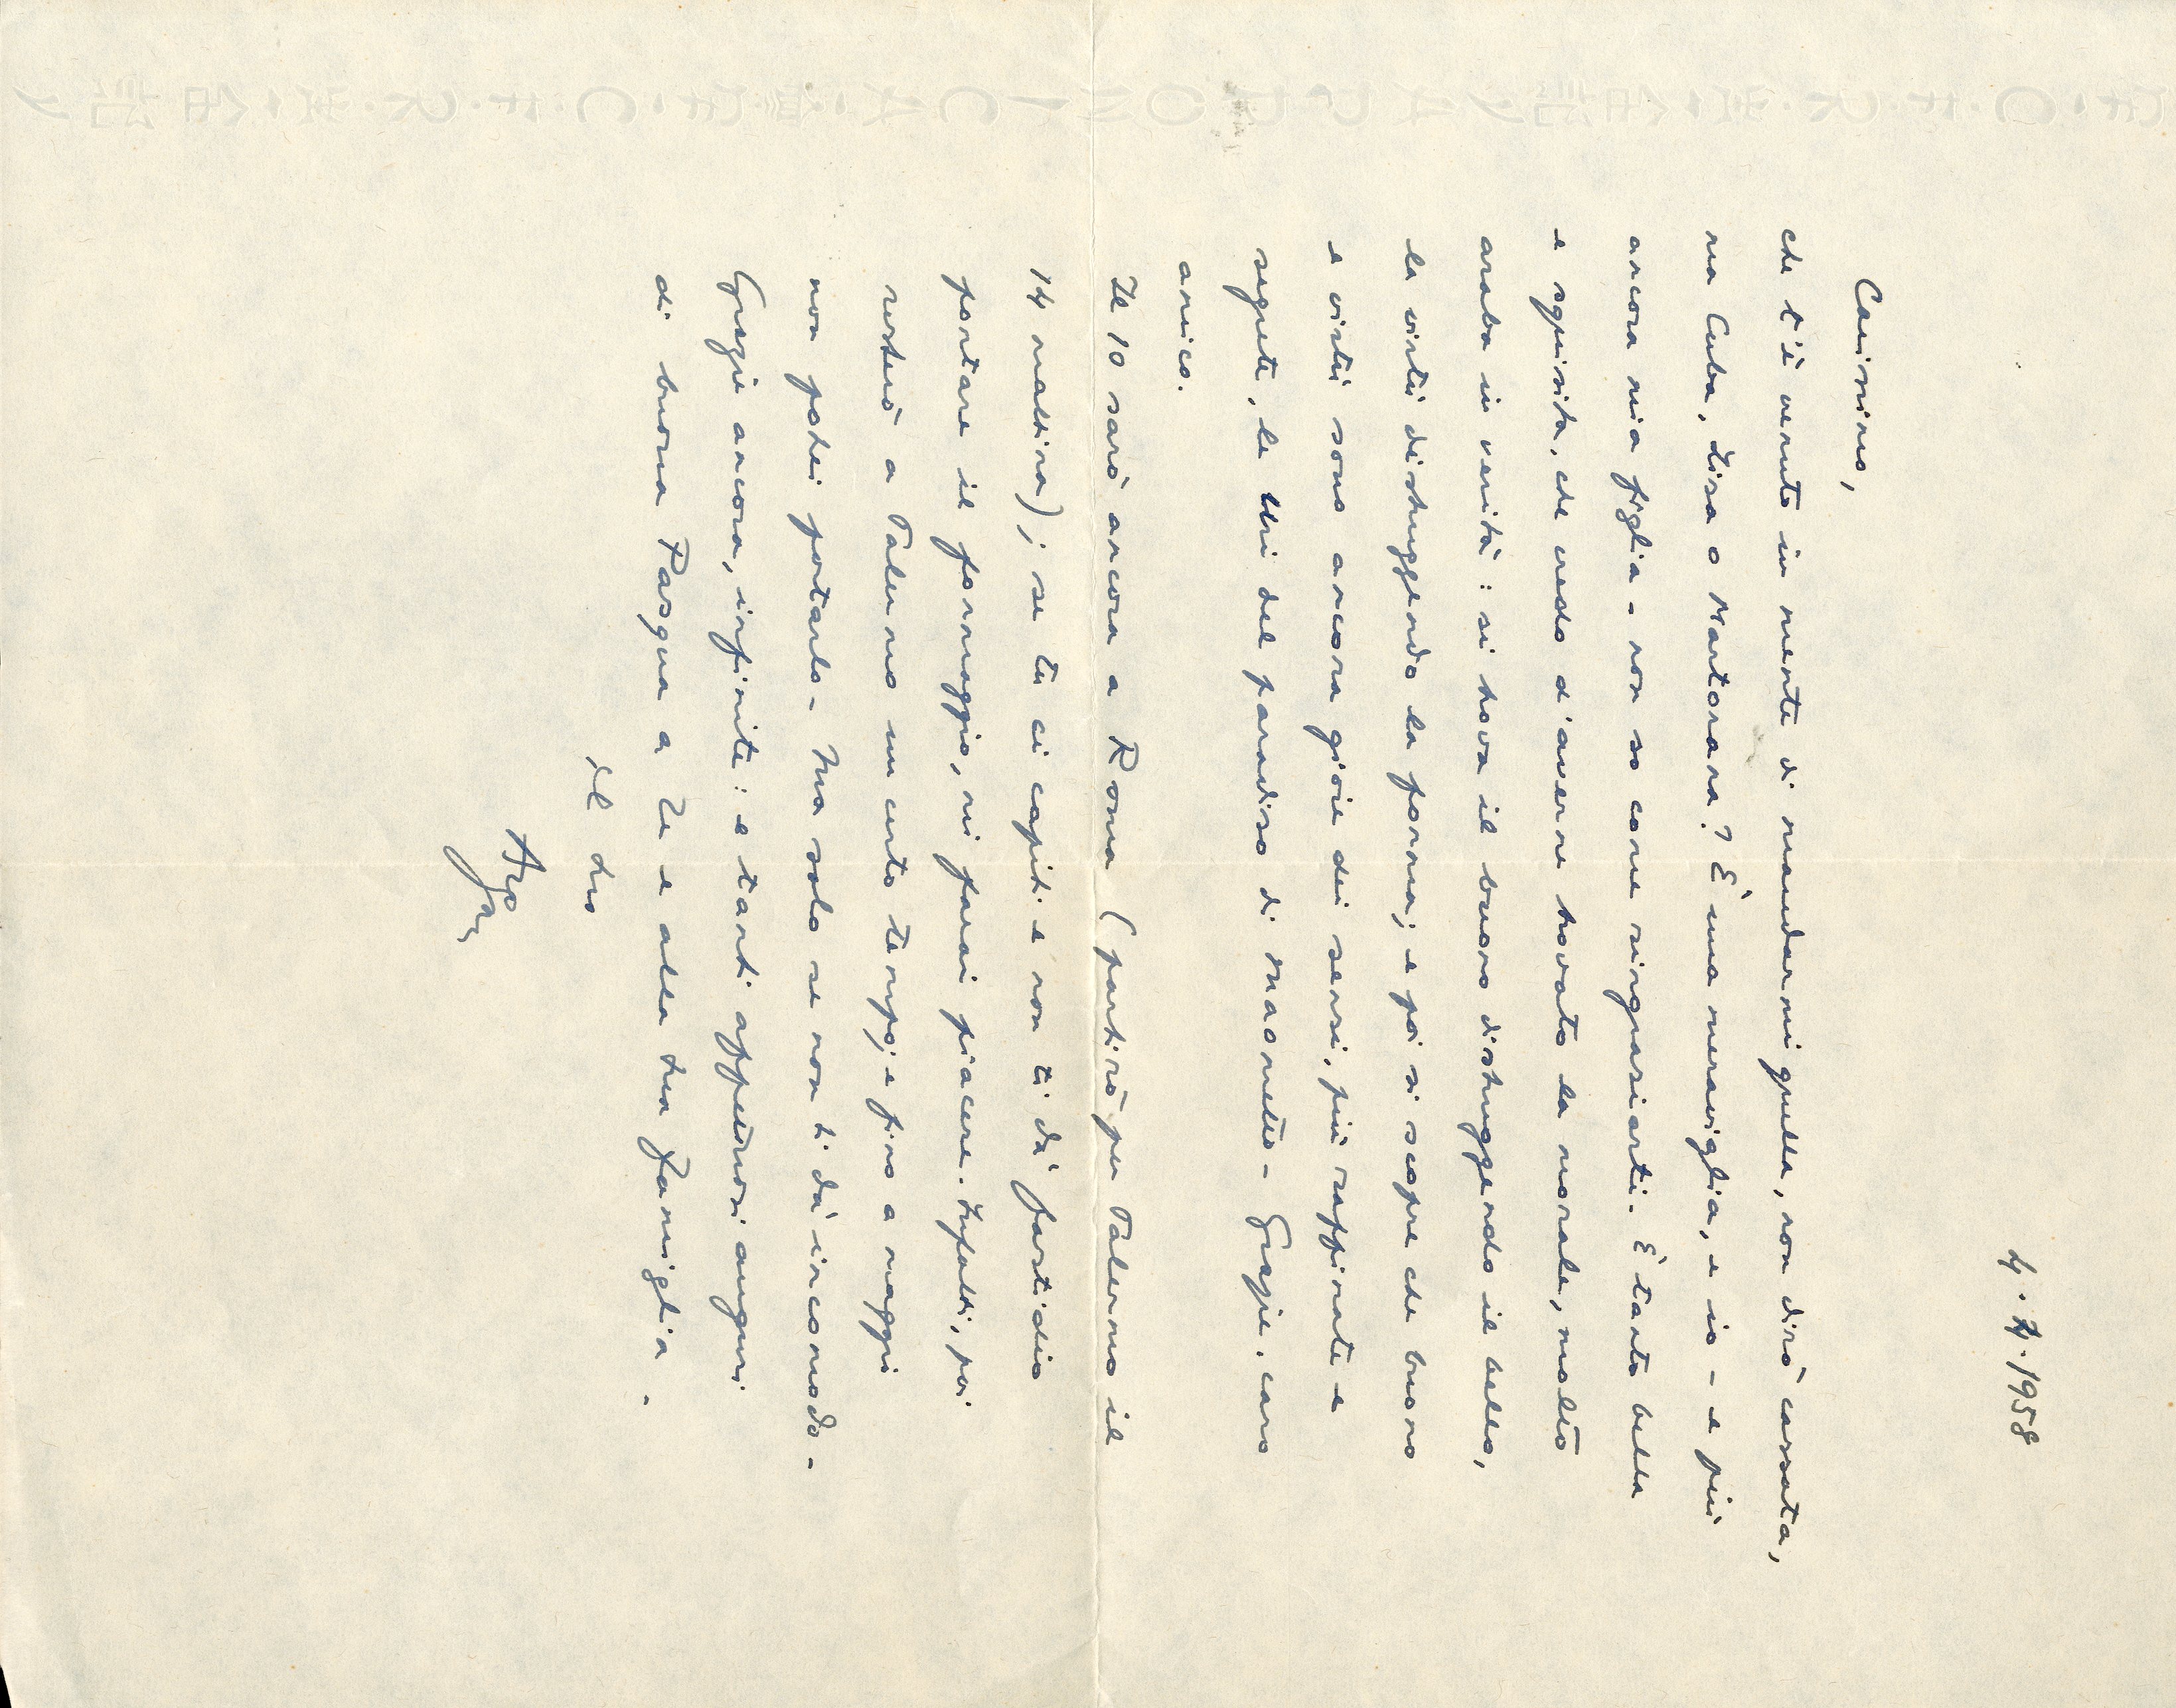 4.4.1958
Carissimo,
che t'è venuto in mente di mandarmi quella, non dirò cassata,
ma Cuba, Zisa o Martorana? È una meraviglia, e io - e più
ancora mia figlia - non so come ringraziarti. È tanto bella
e squisita, che credo d'averne trovato la morale, molto
araba in verità: si trova il buono distruggendo il bello,
la virtù distruggendo la forma; e poi si scopre che buono
e virtù sono ancora gioie dei sensi, più raffinate e
segrete, le Urì del paradiso di Maometto - Grazie, caro
amico.
Il 10 sarò ancora a Roma (partirò per Palermo il
14 mattina); se tu ci capiti e non ti dà fastidio
portare il formaggio, mi farai piacere. Infatti, poi
resterò a Palermo un certo tempo; e fino a maggio
non potei portarlo - Ma solo se non ti dà incomodo -
Grazie ancora, infinite: e tanti affettuosi auguri
di buona Pasqua a Te e alla tua famiglia -
Il tuo